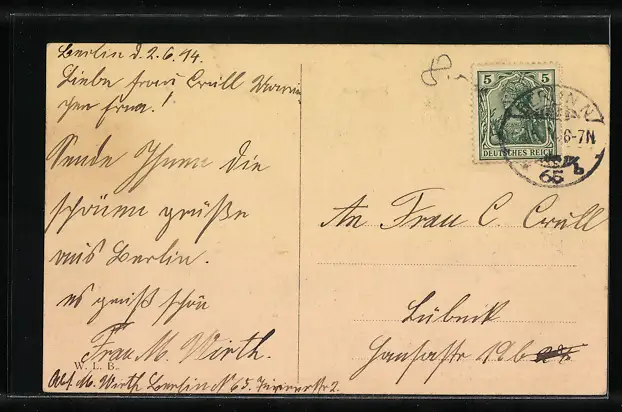 Berlin d. 2.6.14.
Liebe Frau Crull
Erna!
Sende Ihnen die
schönen grüße
aus Berlin.
es grüß schön
Frau M. Wirth.
W. L. B.
Abs. M. Wirth Berlin N 65. 2.
5 5
DEUTSCHES REICH
BERLIN N
6-7N
65
An Frau C. Crull
Lübeck
Hansastr 19b